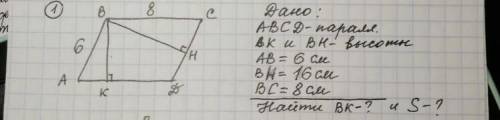 1
B 8 C
6
H
A K D
Дано:
ABCD-паралл.
BK и BH- высоты
AB = 6 см
BH = 16 см
BC = 8 см
Найти BK-? и S-?